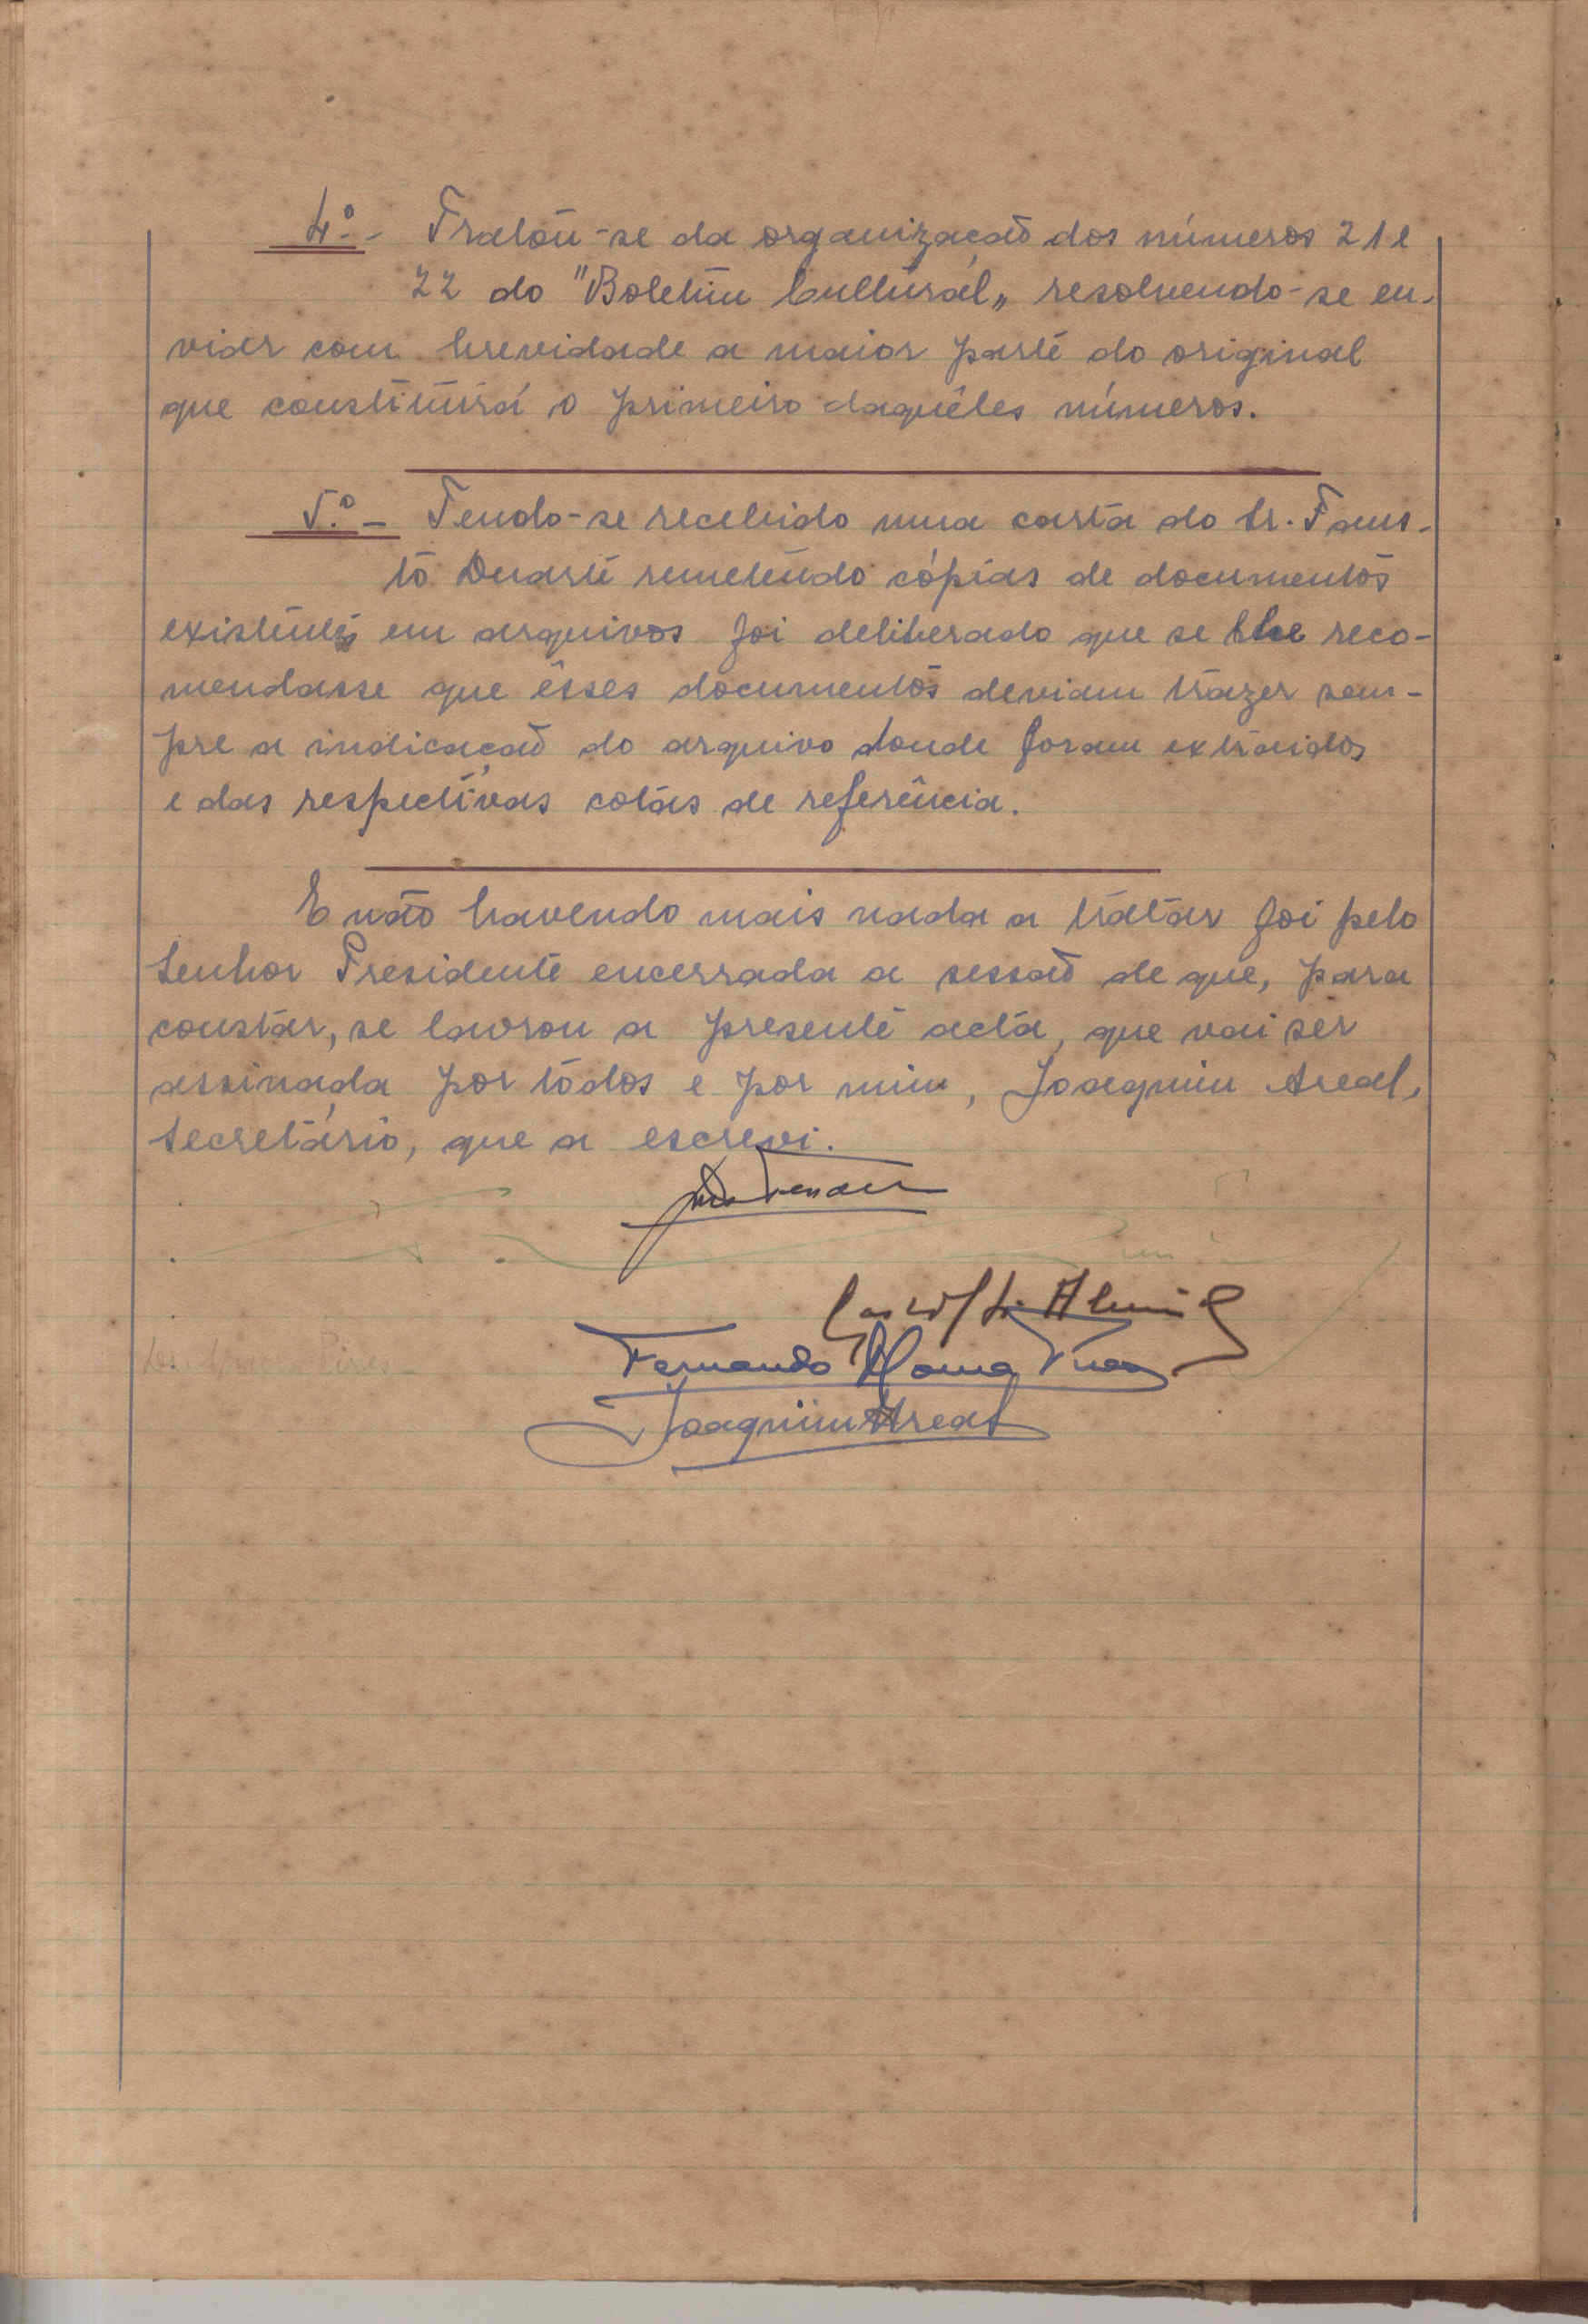 4.º - Tratou-se da organização dos números 21 e
22 do "Boletim Cultural„ resolvendo-se en-
viar com brevidade a maior parte do original
que constituirá o primeiro daquêles números.
5.º - Tendo-se recebido uma carta do Sr. Faus-
to Duarte remetendo cópias de documentos
existentes em arquivos foi deliberado que se lhe reco-
mendasse que êsses documentos deviam trazer sem-
pre a indicação do arquivo donde foram extraidos
e das respectivas cotas de referência.
E não havendo mais nada a tratar foi pelo
Senhor Presidente encerrada a sessão de que, para
constar, se lavrou a presente acta, que vai ser
assinada por todos e por mim, Joaquim Areal,
Secretário, que a escrevi.
Fernando
Joaquim Areal